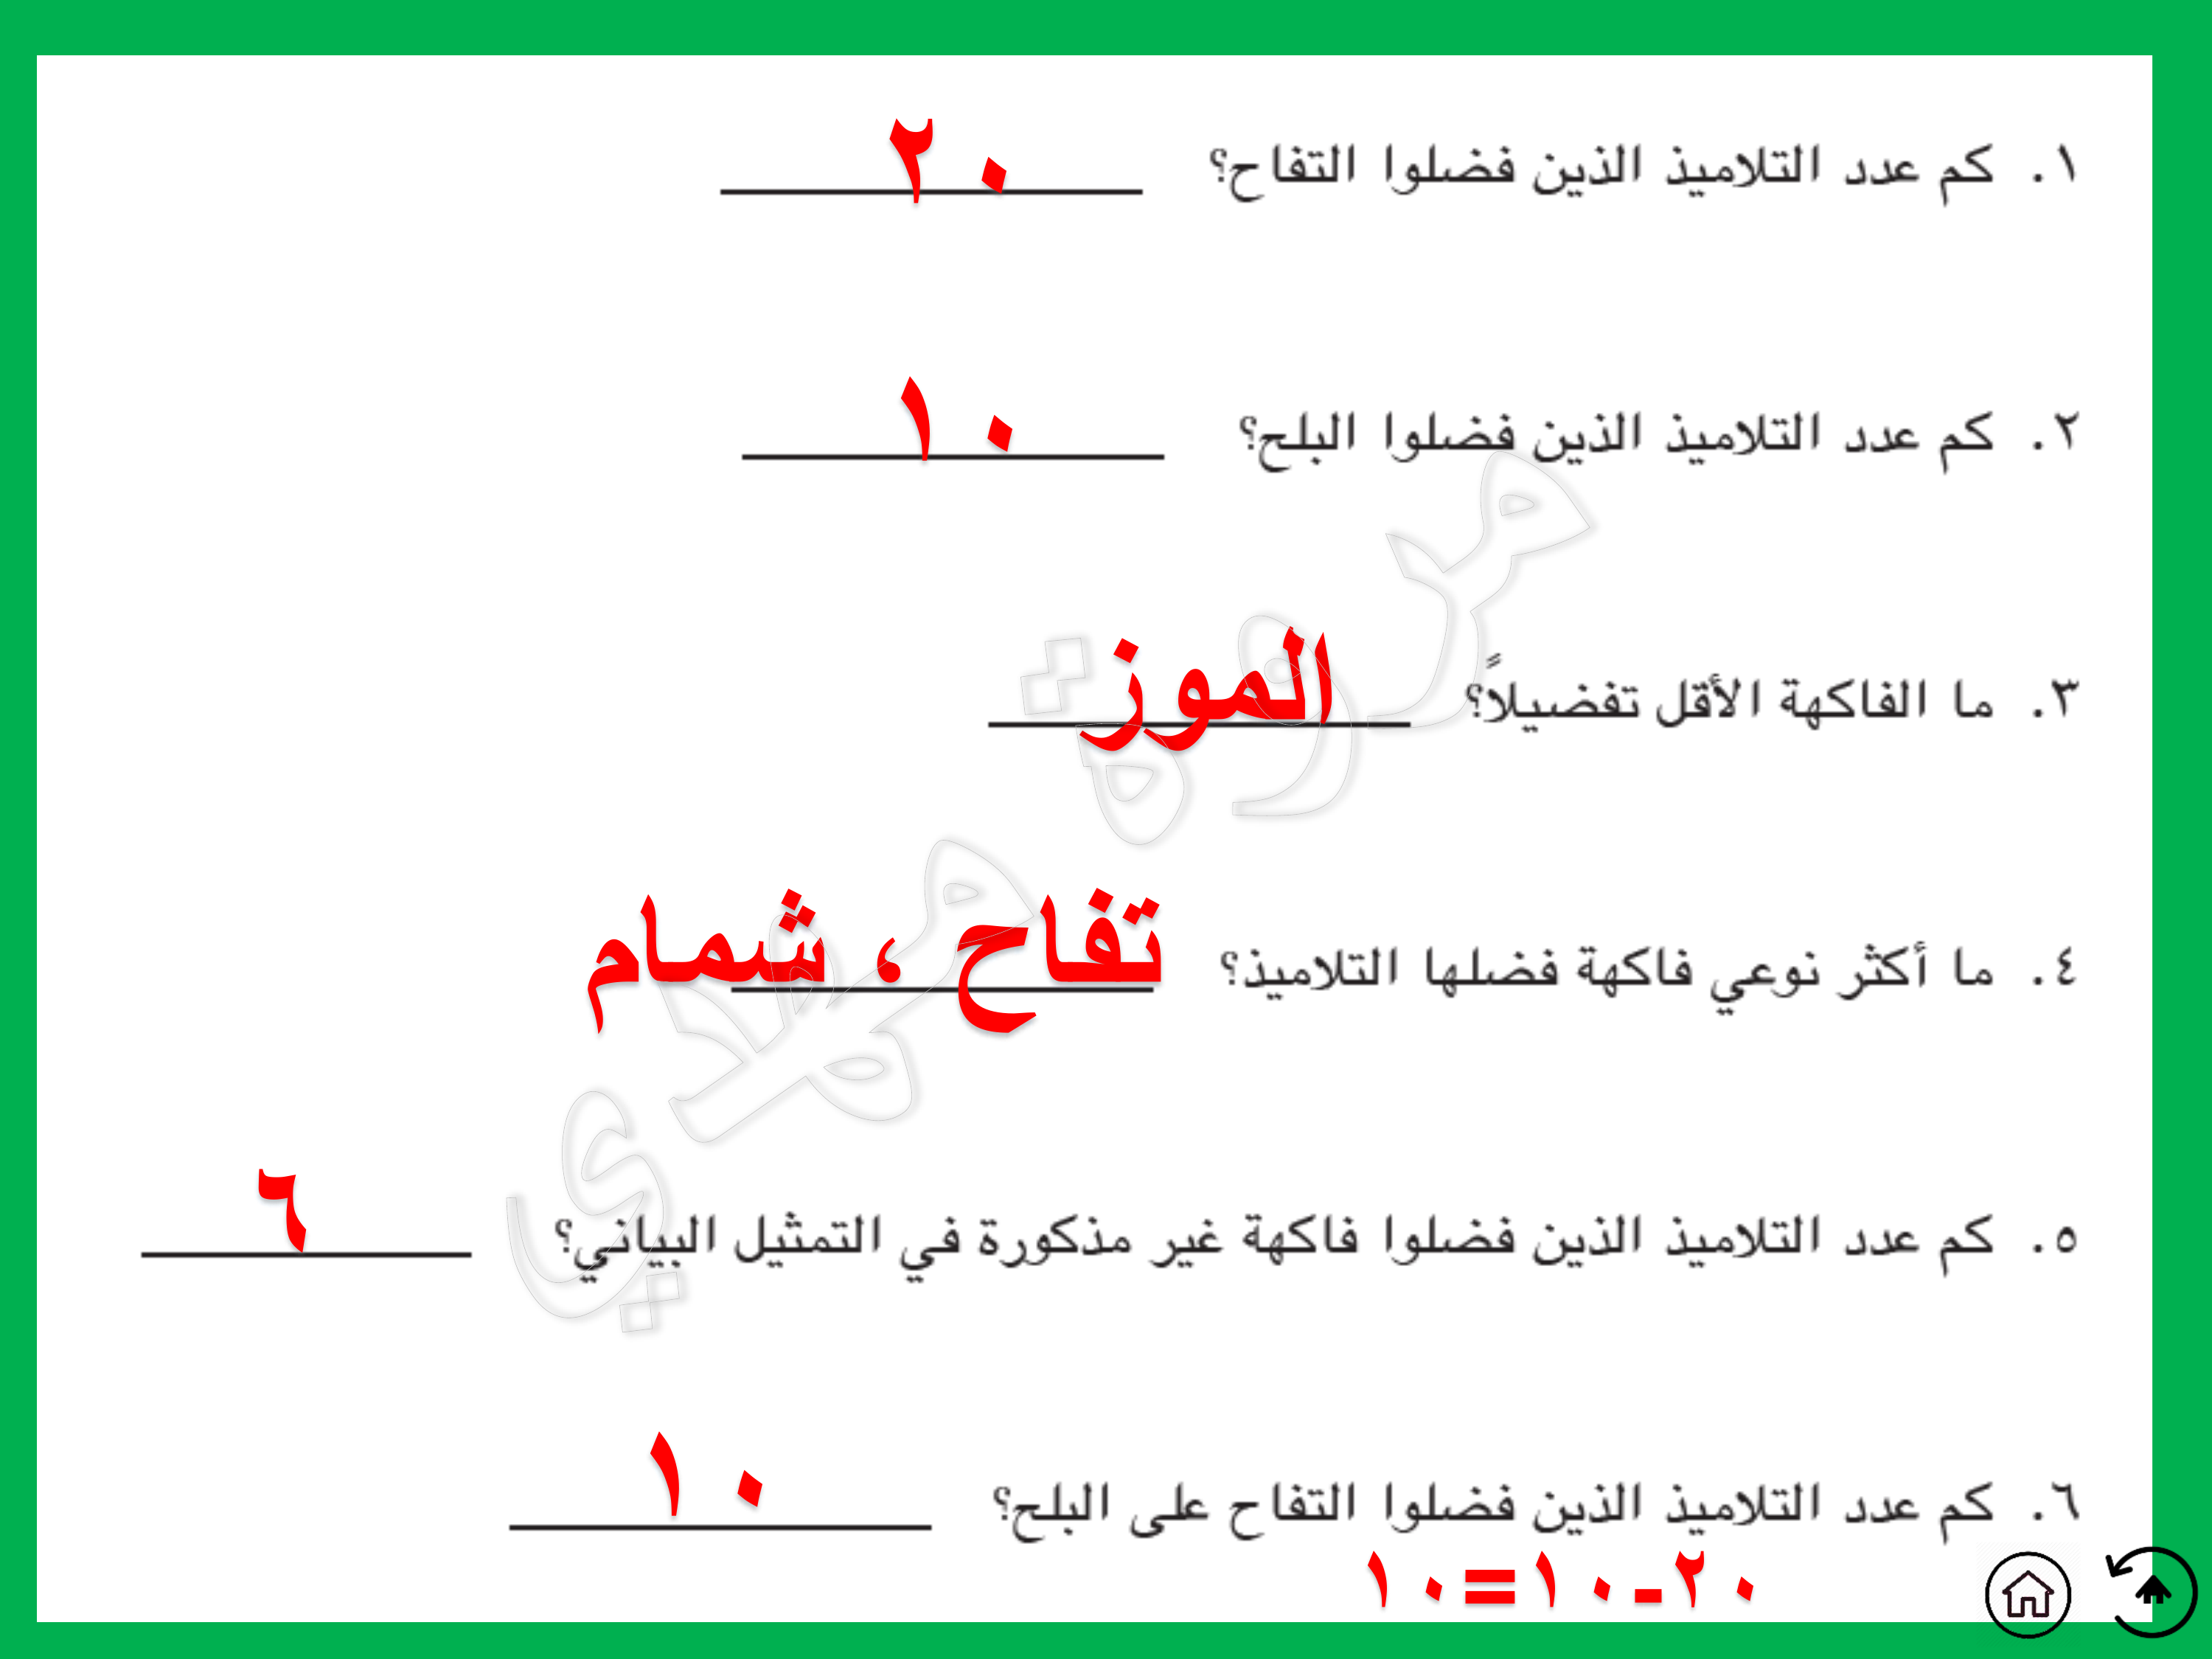 ١. كم عدد التلاميذ الذين فضلوا التفاح؟ ٢٠
٢. كم عدد التلاميذ الذين فضلوا البلح؟ ١٠
٣. ما الفاكهة الأقل تفضيلاً؟ الموز
٤. ما أكثر نوعي فاكهة فضلها التلاميذ؟ تفاح ، شمام
٥. كم عدد التلاميذ الذين فضلوا فاكهة غير مذكورة في التمثيل البياني؟ ٦
٦. كم عدد التلاميذ الذين فضلوا التفاح على البلح؟ ١٠
٢٠-١٠=١٠
مروة مهدي